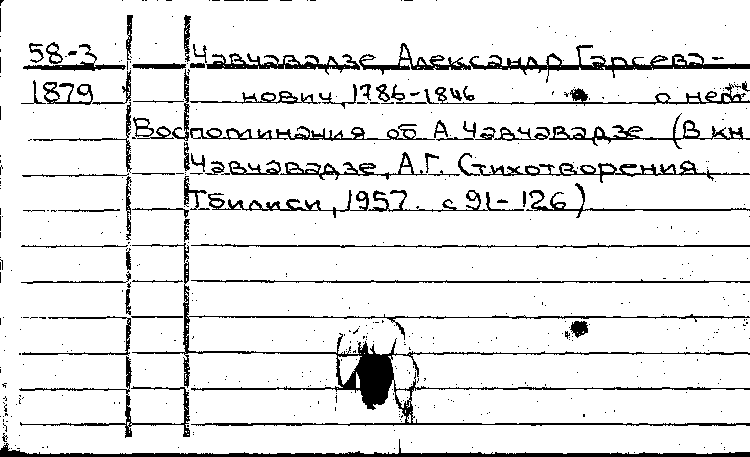 58-3 Чавчавадзе, Александр Гарсева-
1879 нович, 1786-1846 о нем
Воспоминания об А. Чавчавадзе. (В кн
Чавчавадзе, А.Г. Стихотворения,
Тбилиси, 1957. с 91-126)